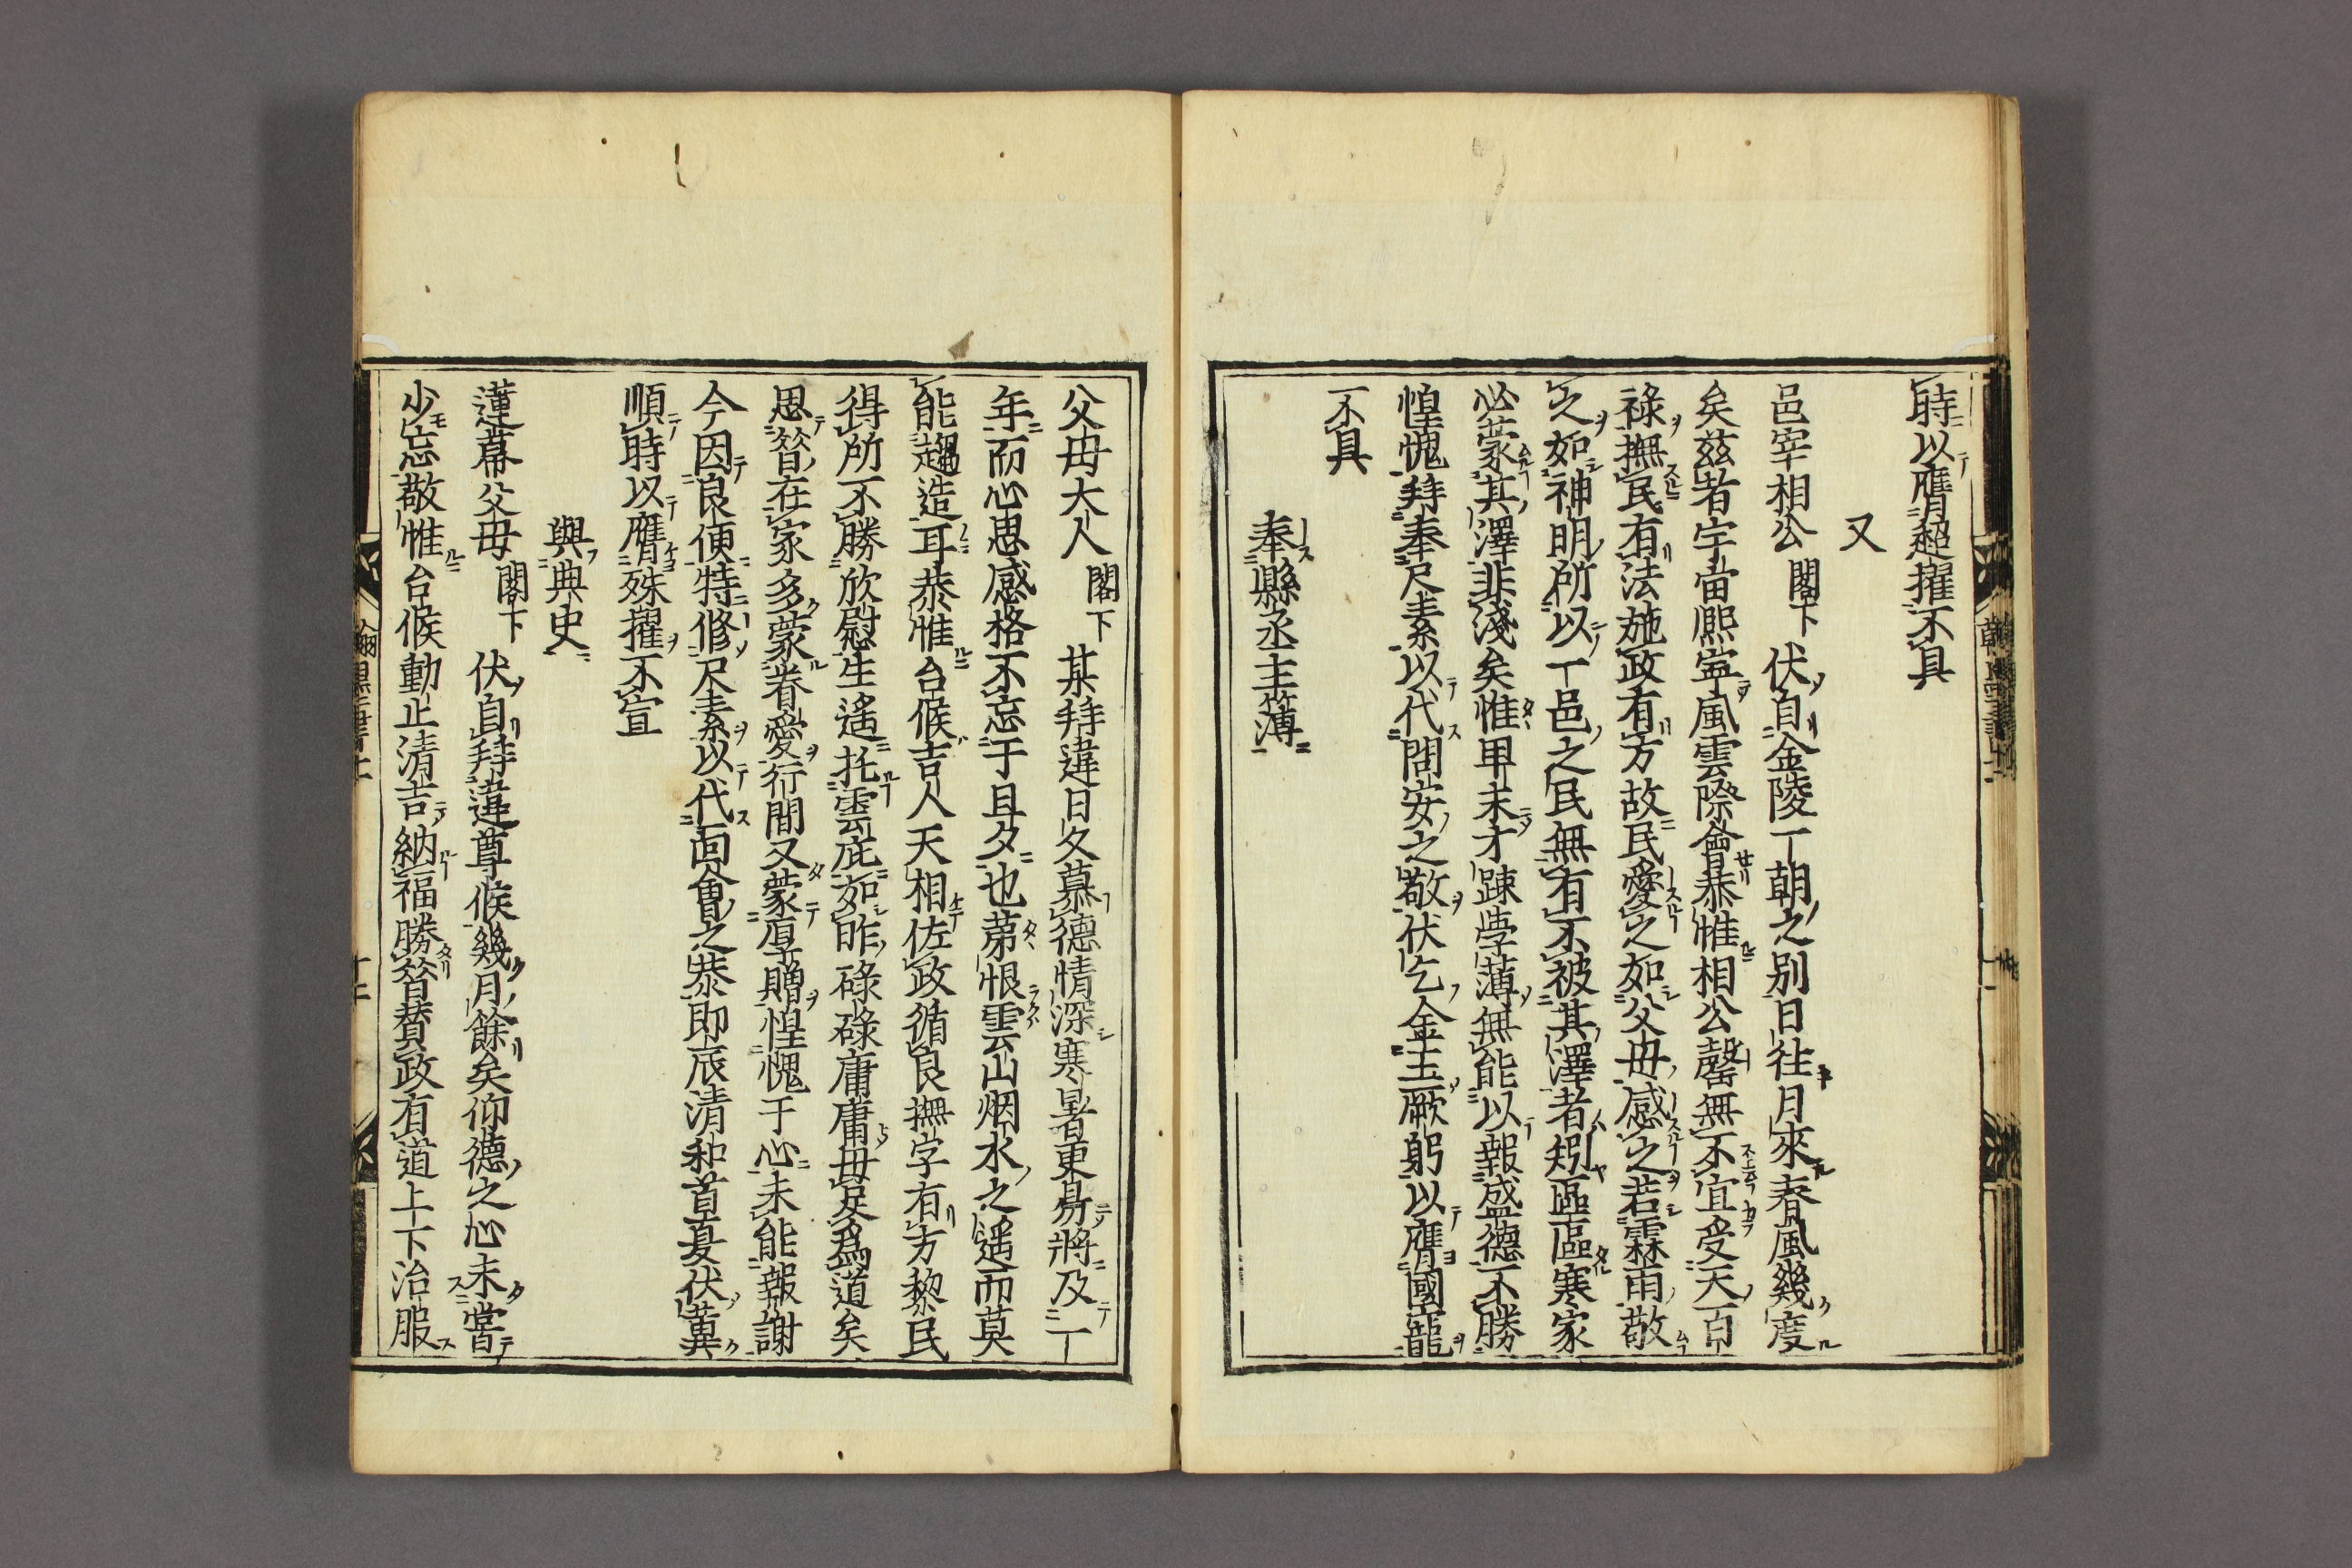 時以膺超擢不具
又
邑宰相公 閣下 伏自金陵丁朝之别日徃月來春風幾度
矣茲者宇宙熈寧風雲際會恭惟相公罄無不宜受天百
祿撫民有法施政有方故民愛之如父毋感之若霖雨敬
之如神明所以丁邑之民無有不被其澤者矧區區寒家
必蒙其澤非淺矣惟甲末才踈學薄無能以報盛德不勝
惶愧拜奉尺素以代問安之敬伏乞金玉厥躬以膺國寵
不具
奉縣丞主簿
父毋大人 閣下 某拜違日久慕德情深寒暑更昜將及丁
年而心思感格不忘于旦夕也苐恨雲山烟水之遥而莫
能趨造耳恭惟台候吉人天相佐政循良撫字有方黎民
得所不勝欣慰生遥托雲庇如昨碌碌庸庸毋足爲道矣
思昝在家多蒙眷愛行間又蒙厚贈惶愧于心未能報謝
今因良便特修尺素以代面會之恭即辰清和首夏伏冀
順時以膺殊擢不宣
與典史
蓮幕父毋 閣下 伏自拜違尊候幾月餘矣仰德之心未嘗
少忘敬惟台候動止清吉納福勝昝賛政有道上下治服